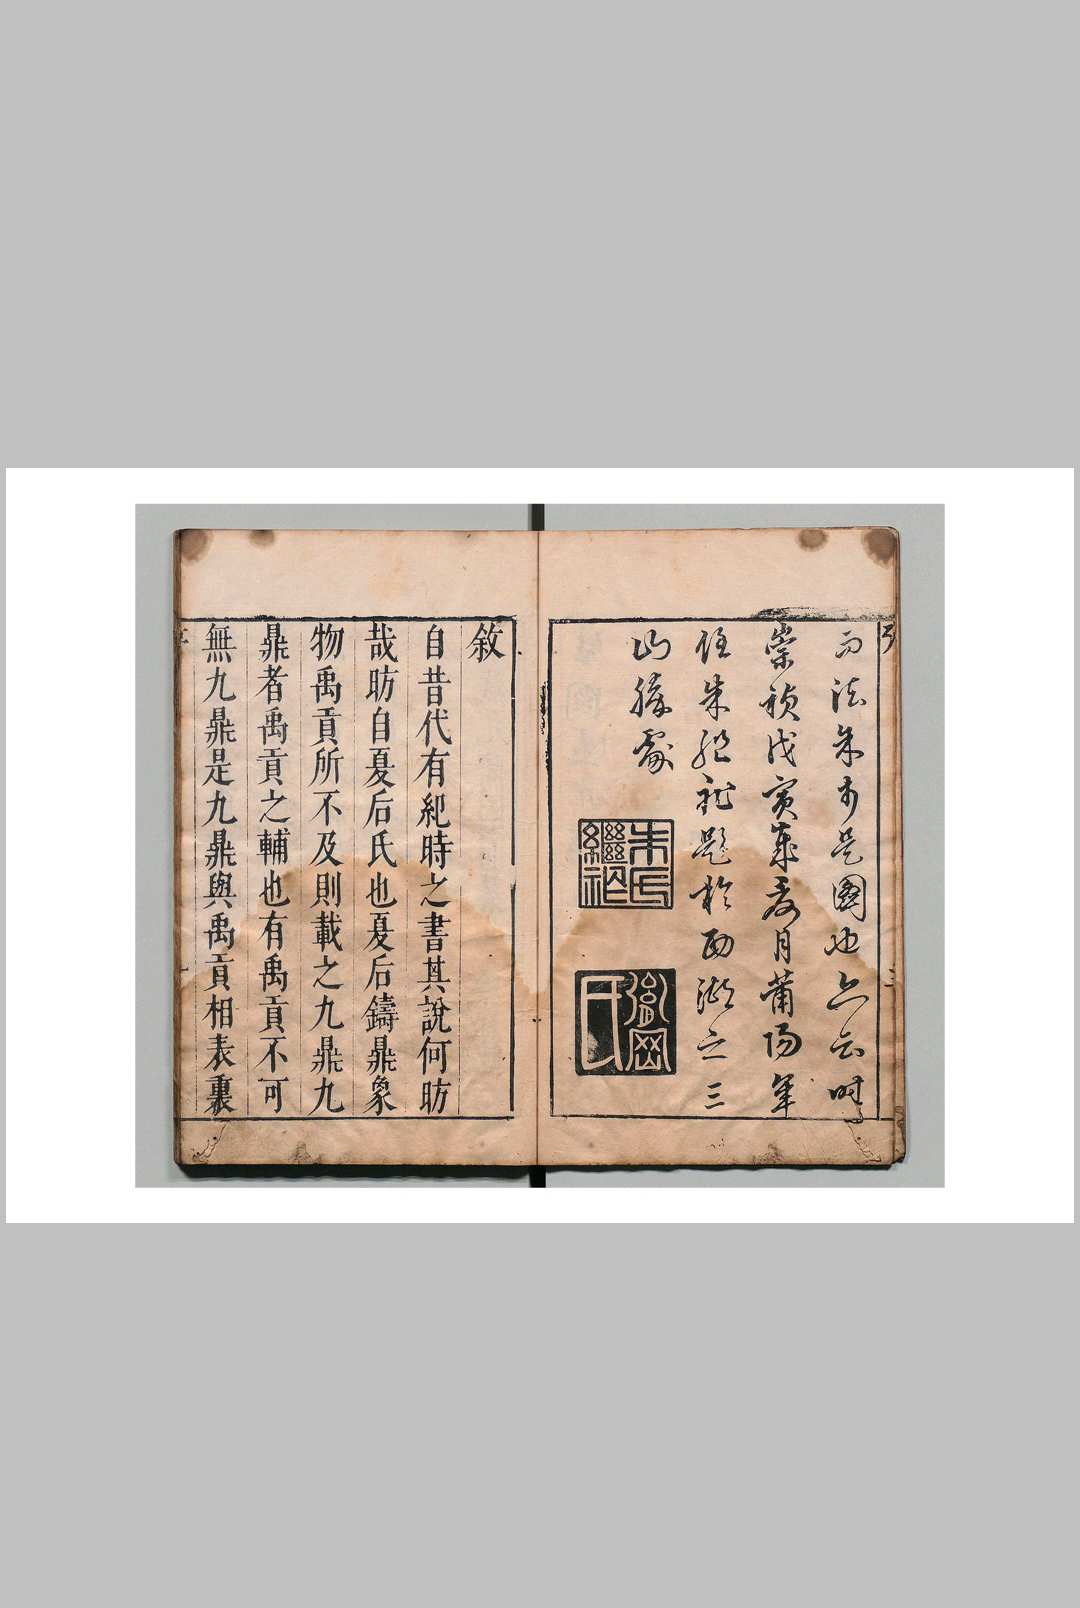 而法是圖也亦云時
崇禎戊寅歲夏月莆陽年
侄朱繼祚題於西湖之三
山勝處
朱氏
繼祚
敘
自昔代有紀時之書其說何昉
哉昉自夏后氏也夏后鑄鼎象
物禹貢所不及則載之九鼎九
鼎者禹貢之輔也有禹貢不可
無九鼎是九鼎與禹貢相表裏